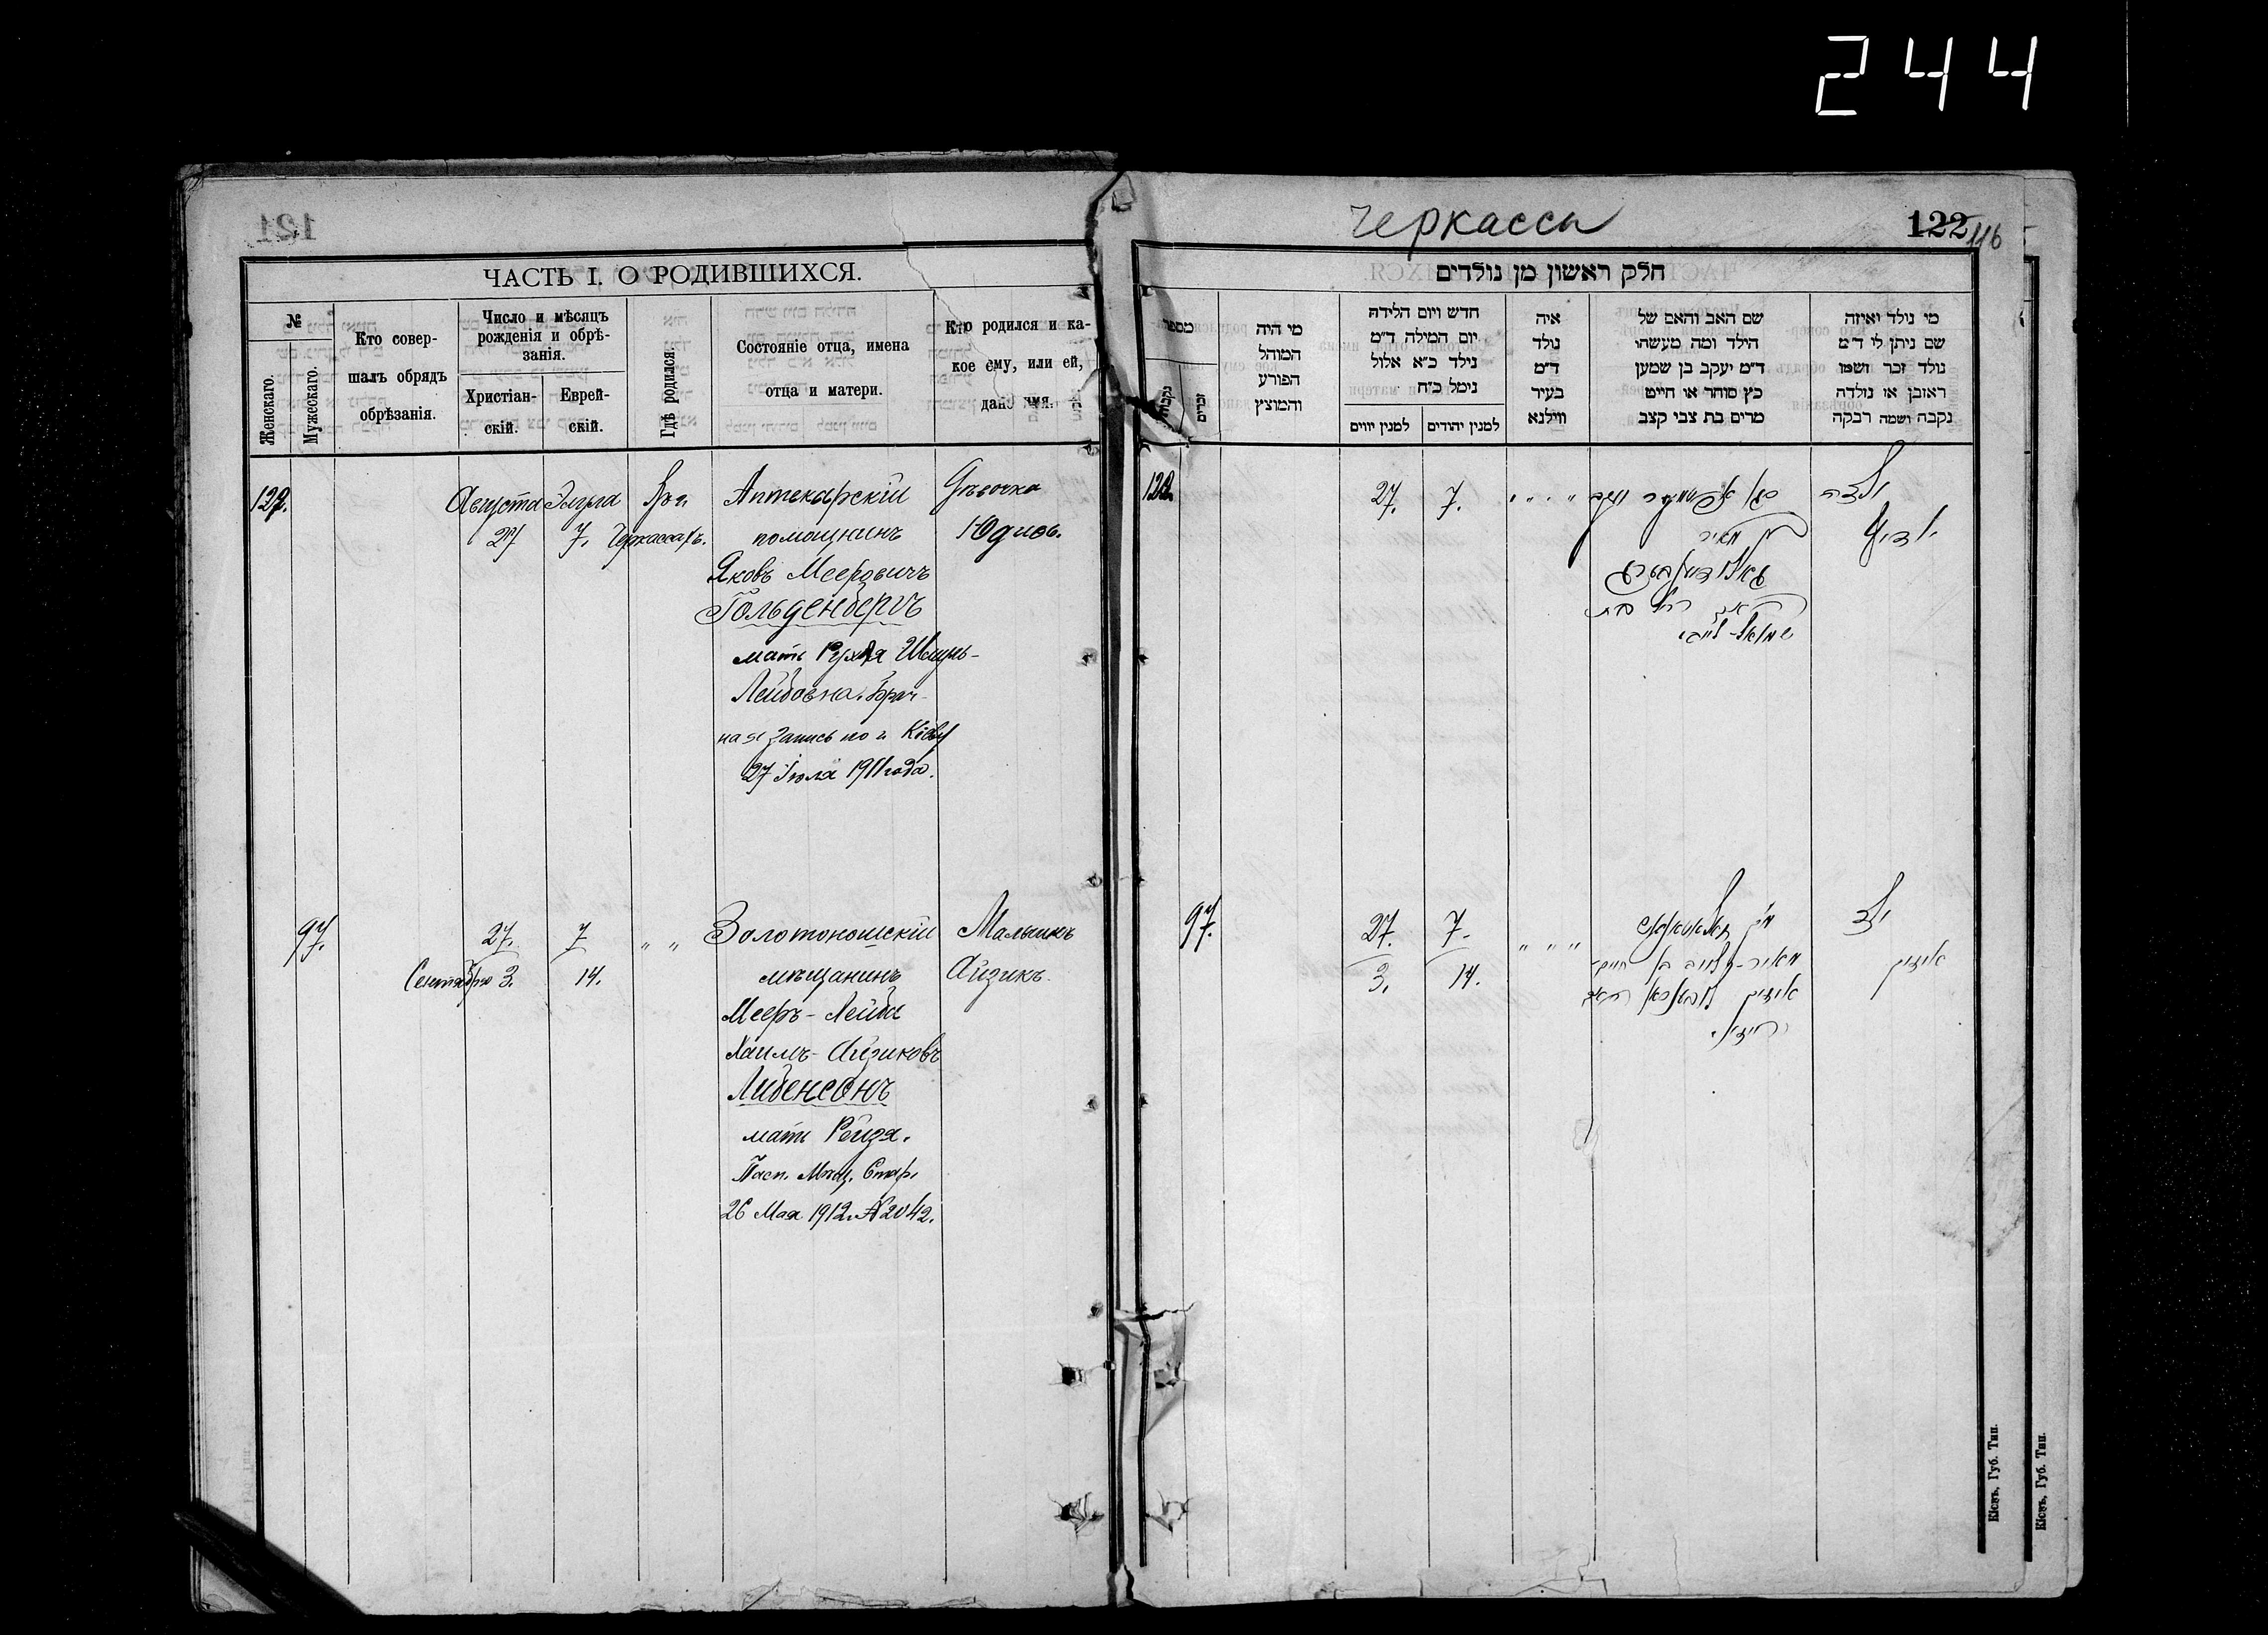 244
121
ЧАСТЬ I. О РОДИВШИХСЯ.
№
Женскаго.
Мужескаго.
Кто совер-
шалъ обрядъ
обрѣзанія.
Число и мѣсяцъ
рожденія и обрѣ-
занія.
Христіан-
скій.
Еврей-
скій.
Гдѣ родился.
Состояніе отца, имена
отца и матери.
Кто родился и ка-
кое ему, или ей,
дано имя.
Августа
27
Элула
7.
Черкассахъ.
Аптекарскій
помощникъ
Яковъ Мееровичъ
Гольденбергъ
мать Рухля Шмуль-
Лейбовна. Брач-
ная запись по г. Кіеву
27 Іюля 1911 года.
Дѣвочка
Юдиѳь.
97.
27.
Сентября 3.
7
14.
" "
Золотоношскій
мѣщанинъ
Мееръ-Лейба
Хаимъ-Айзиковъ
Либенсонъ
мать Рейзя.
Пасп. Мѣщ. Стар.
26 Мая 1912 № 2042.
Мальчикъ
Айзикъ.
Черкассы
122
116
חלק ראשון מן נולדים
מספר
נקבות
זכרים
מי היה
המוהל
הפורע
והמוצץ
חדש ויום הלידה
יום המילה ד״מ
נילד כ״א אלול
נימל כ״ח
למנין יווים
למנין יהודים
איה
נולד
ד״מ
בעיר
ווילנא
שם האב והאם של
הילד ומה מעשהו
ד״מ יעקב בן שמעון
כץ סוחר או חייט
מרים בת צבי קצב
מי נילד ואיזה
שם ניתן לי ד״מ
נולד זכר ושמו
ראובן או נולדה
נקבה ושמה רבקה
27.
7.
בן מאיר
גאלדענבערג
רחל בת
שמואל-לייב
ילדה
97.
27.
3.
7.
14.
" " "
מאיר-לייב בן חיים-
אייזיק
ילד
אייזיק
Кіевъ, Губ. Тип.
Кіевъ, Губ. Тип.